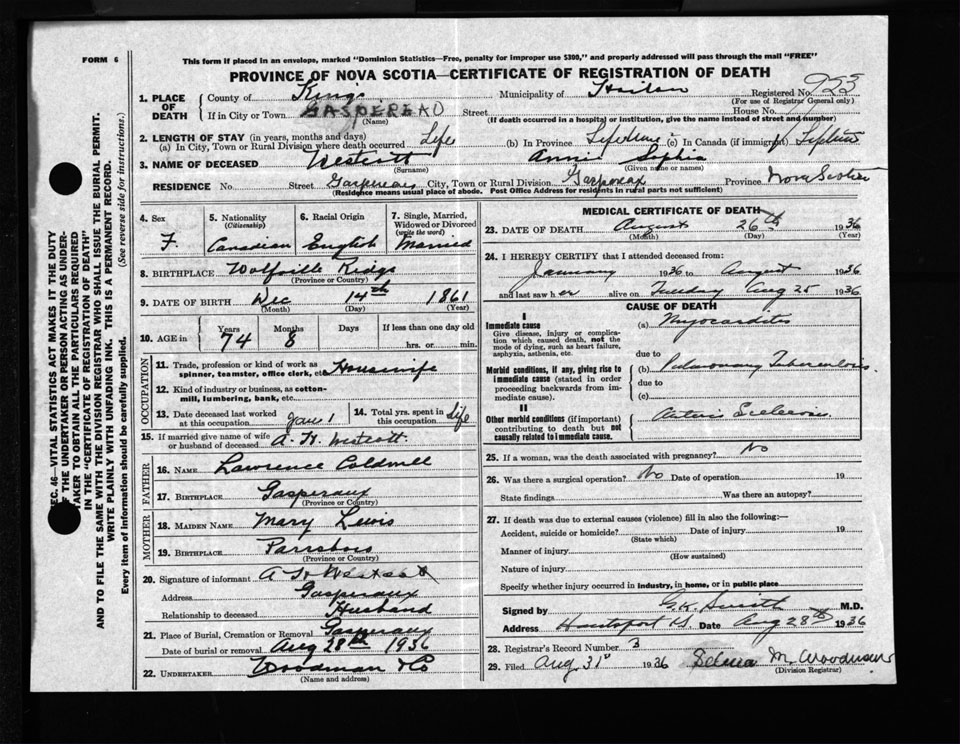 FORM 6
This form if placed in an envelope, marked "Dominion Statistics—Free, penalty for improper use $300," and properly addressed will pass through the mail "FREE"
PROVINCE OF NOVA SCOTIA—CERTIFICATE OF REGISTRATION OF DEATH
1. PLACE OF DEATH
County of Kings Municipality of Registered No. 923
(For use of Registrar General only)
If in City or Town GASPEREAU Street House No.
(Name) (If death occurred in a hospital or institution, give the name instead of street and number)
2. LENGTH OF STAY (in years, months and days)
(a) In City, Town or Rural Division where death occurred Life (b) In Province Lifetime (c) In Canada (if immigrant) Lifetime
3. NAME OF DECEASED Westcott Annie Sophia
(Surname) (Given name or names)
RESIDENCE No. Street Gaspereau City, Town or Rural Division Gaspereau Province Nova Scotia
(Residence means usual place of abode. Post Office Address for residents in rural parts not sufficient)
4. Sex F.
5. Nationality (Citizenship) Canadian
6. Racial Origin English
7. Single, Married, Widowed or Divorced (write the word) Married
8. BIRTHPLACE Wolfville Ridge
(Province or Country)
9. DATE OF BIRTH Dec 14th 1861
(Month) (Day) (Year)
10. AGE in Years 74 Months 8 Days If less than one day old hrs. or min.
OCCUPATION
11. Trade, profession or kind of work as spinner, teamster, office clerk, etc. Housewife
12. Kind of industry or business, as cotton-mill, lumbering, bank, etc.
13. Date deceased last worked at this occupation June 1 14. Total yrs. spent in this occupation life
15. If married give name of wife or husband of deceased A. W. Westcott
FATHER
16. NAME Lawrence Coldwell
17. BIRTHPLACE Gaspereau
(Province or Country)
MOTHER
18. MAIDEN NAME Mary Lewis
19. BIRTHPLACE Parrsboro
(Province or Country)
20. Signature of informant A W Westcott
Address Gaspereau
Relationship to deceased Husband
21. Place of Burial, Cremation or Removal Gaspereau
Date of burial or removal Aug 28th 1936
22. UNDERTAKER Woodman & Co
(Name and address)
MEDICAL CERTIFICATE OF DEATH
23. DATE OF DEATH August 26th 1936
(Month) (Day) (Year)
24. I HEREBY CERTIFY that I attended deceased from:
January 1936 to August 1936
and last saw her alive on Tuesday Aug 25 1936
CAUSE OF DEATH
I
Immediate cause
Give disease, injury or complication which caused death, not the mode of dying, such as heart failure, asphyxia, asthenia, etc.
(a) Myocarditis
due to
Morbid conditions, if any, giving rise to immediate cause (stated in order proceeding backwards from immediate cause).
(b) Pulmonary Tuberculosis.
due to
(c)
II
Other morbid conditions (if important) contributing to death but not causally related to immediate cause.
25. If a woman, was the death associated with pregnancy? No
26. Was there a surgical operation? No Date of operation 19
State findings Was there an autopsy?
27. If death was due to external causes (violence) fill in also the following:—
Accident, suicide or homicide? Date of injury 19
(State which)
Manner of injury
(How sustained)
Nature of injury
Specify whether injury occurred in industry, in home, or in public place
Signed by G.K. Smith M.D.
Address Hantsport N.S. Date Aug 28th 1936
28. Registrar's Record Number 3
29. Filed Aug 31st 1936 Selina M. Woodman
(Division Registrar)
SEC. 46—VITAL STATISTICS ACT MAKES IT THE DUTY
OF THE UNDERTAKER OR PERSON ACTING AS UNDER-
TAKER TO OBTAIN ALL THE PARTICULARS REQUIRED
IN THE "CERTIFICATE OF REGISTRATION OF DEATH"
AND TO FILE THE SAME WITH THE DIVISION REGISTRAR WHO SHALL ISSUE THE BURIAL PERMIT.
WRITE PLAINLY WITH UNFADING INK. THIS IS A PERMANENT RECORD.
Every item of Information should be carefully supplied. (See reverse side for instructions.)